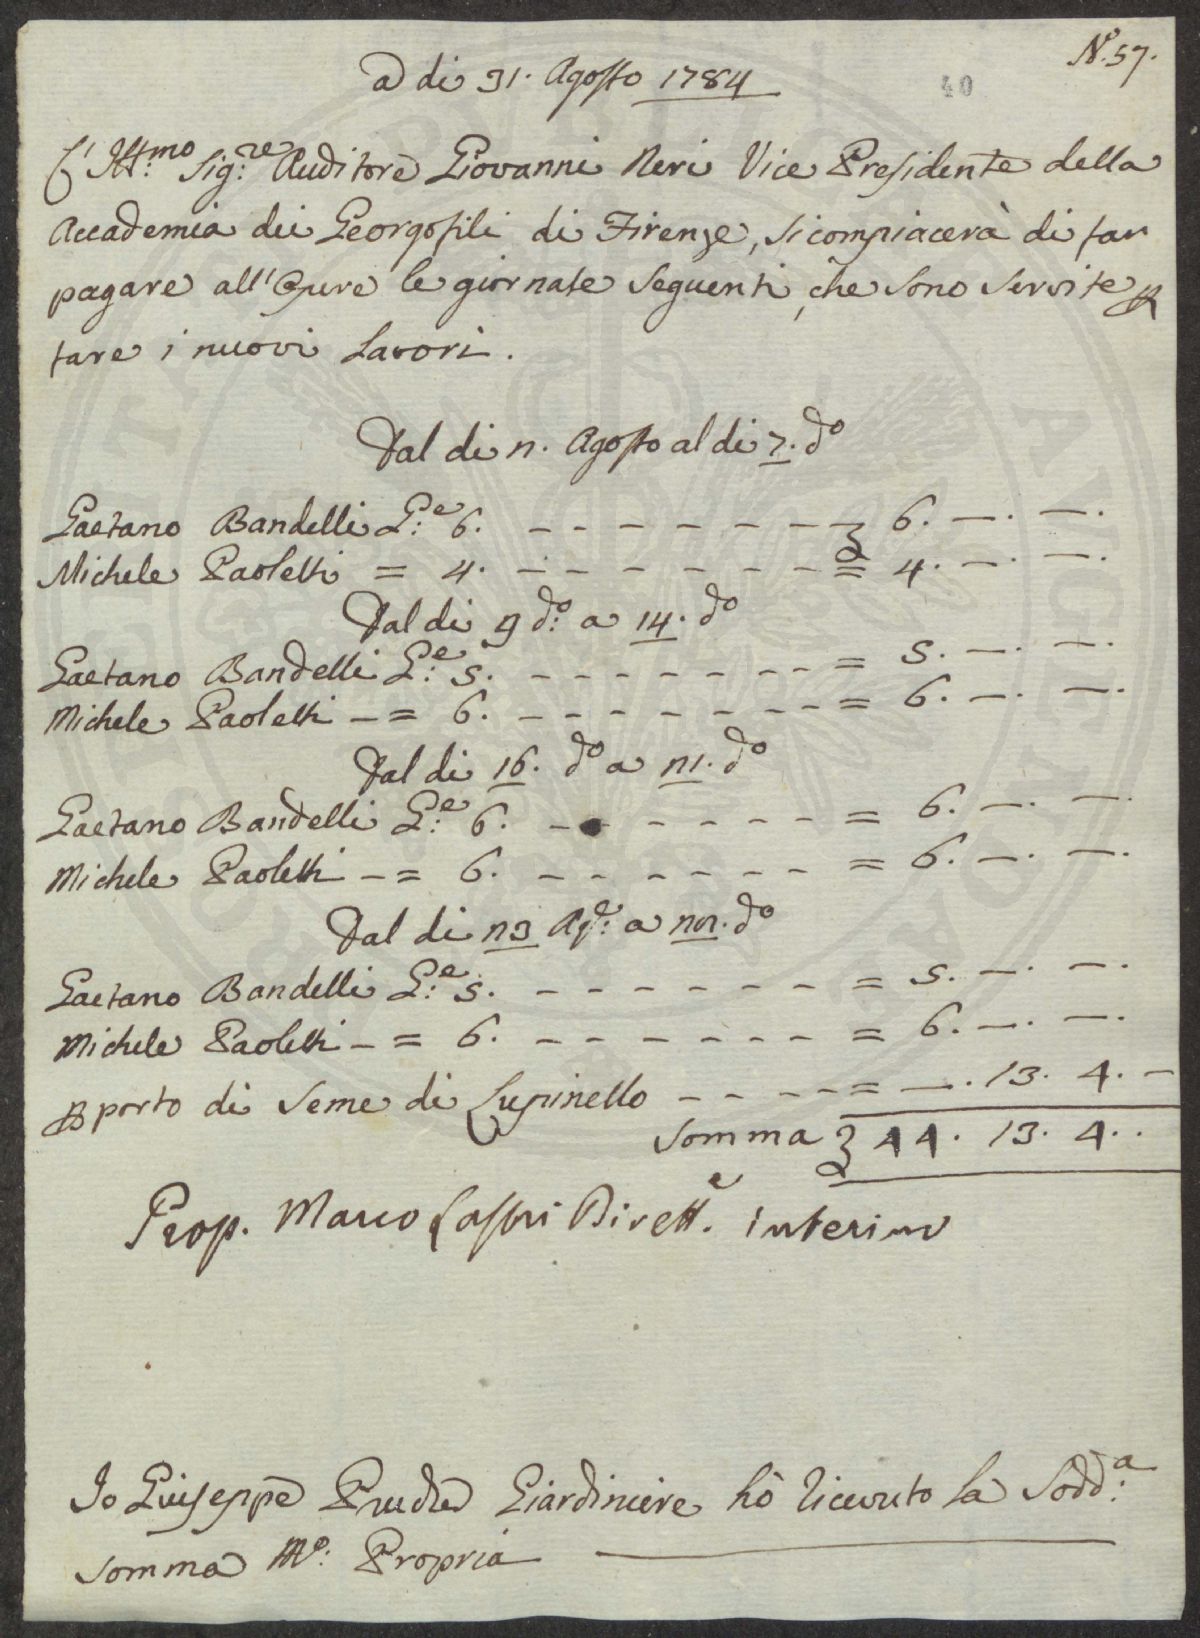 N.º 57.
40
a di 31. Agosto 1784
L'Ill:mo Sig:re Auditore Giovanni Neri Vice Presidente della
Accademia dei Georgofili di Firenze, si compiacerà di far
pagare all'Opere le giornate seguenti, che sono servite p
fare i nuovi Lavori.
Dal di 2. Agosto al di 7. do
Gaetano Bandelli G:e 6. - - - - - - - £ 6. —. —.
Michele Paoletti = 4. - - - - - - - = 4. —. —.
Dal di 9 do: a 14. do
Gaetano Bandelli G:e 5. - - - - - - - = 5. —. —.
Michele Paoletti - = 6. - - - - - - - = 6. —. —.
Dal di 16. do a 21. do
Gaetano Bandelli G:e 6. - - - - - - - = 6. —. —.
Michele Paoletti - = 6. - - - - - - = 6. —. —.
Dal di 23 Ago: a 28. do
Gaetano Bandelli G:e 5. - - - - - - - = 5. —. —.
Michele Paoletti - = 6. - - - - - - - = 6. —. —.
p porto di Seme di Lupinello - - - - = —. 13. 4. -
Somma £ 44. 13. 4..
Prop. Marco Lastri Dirett.e interino
Io Giuseppe Giardiniere hò ricevuto la Sodd:a
somma Mo: Propria